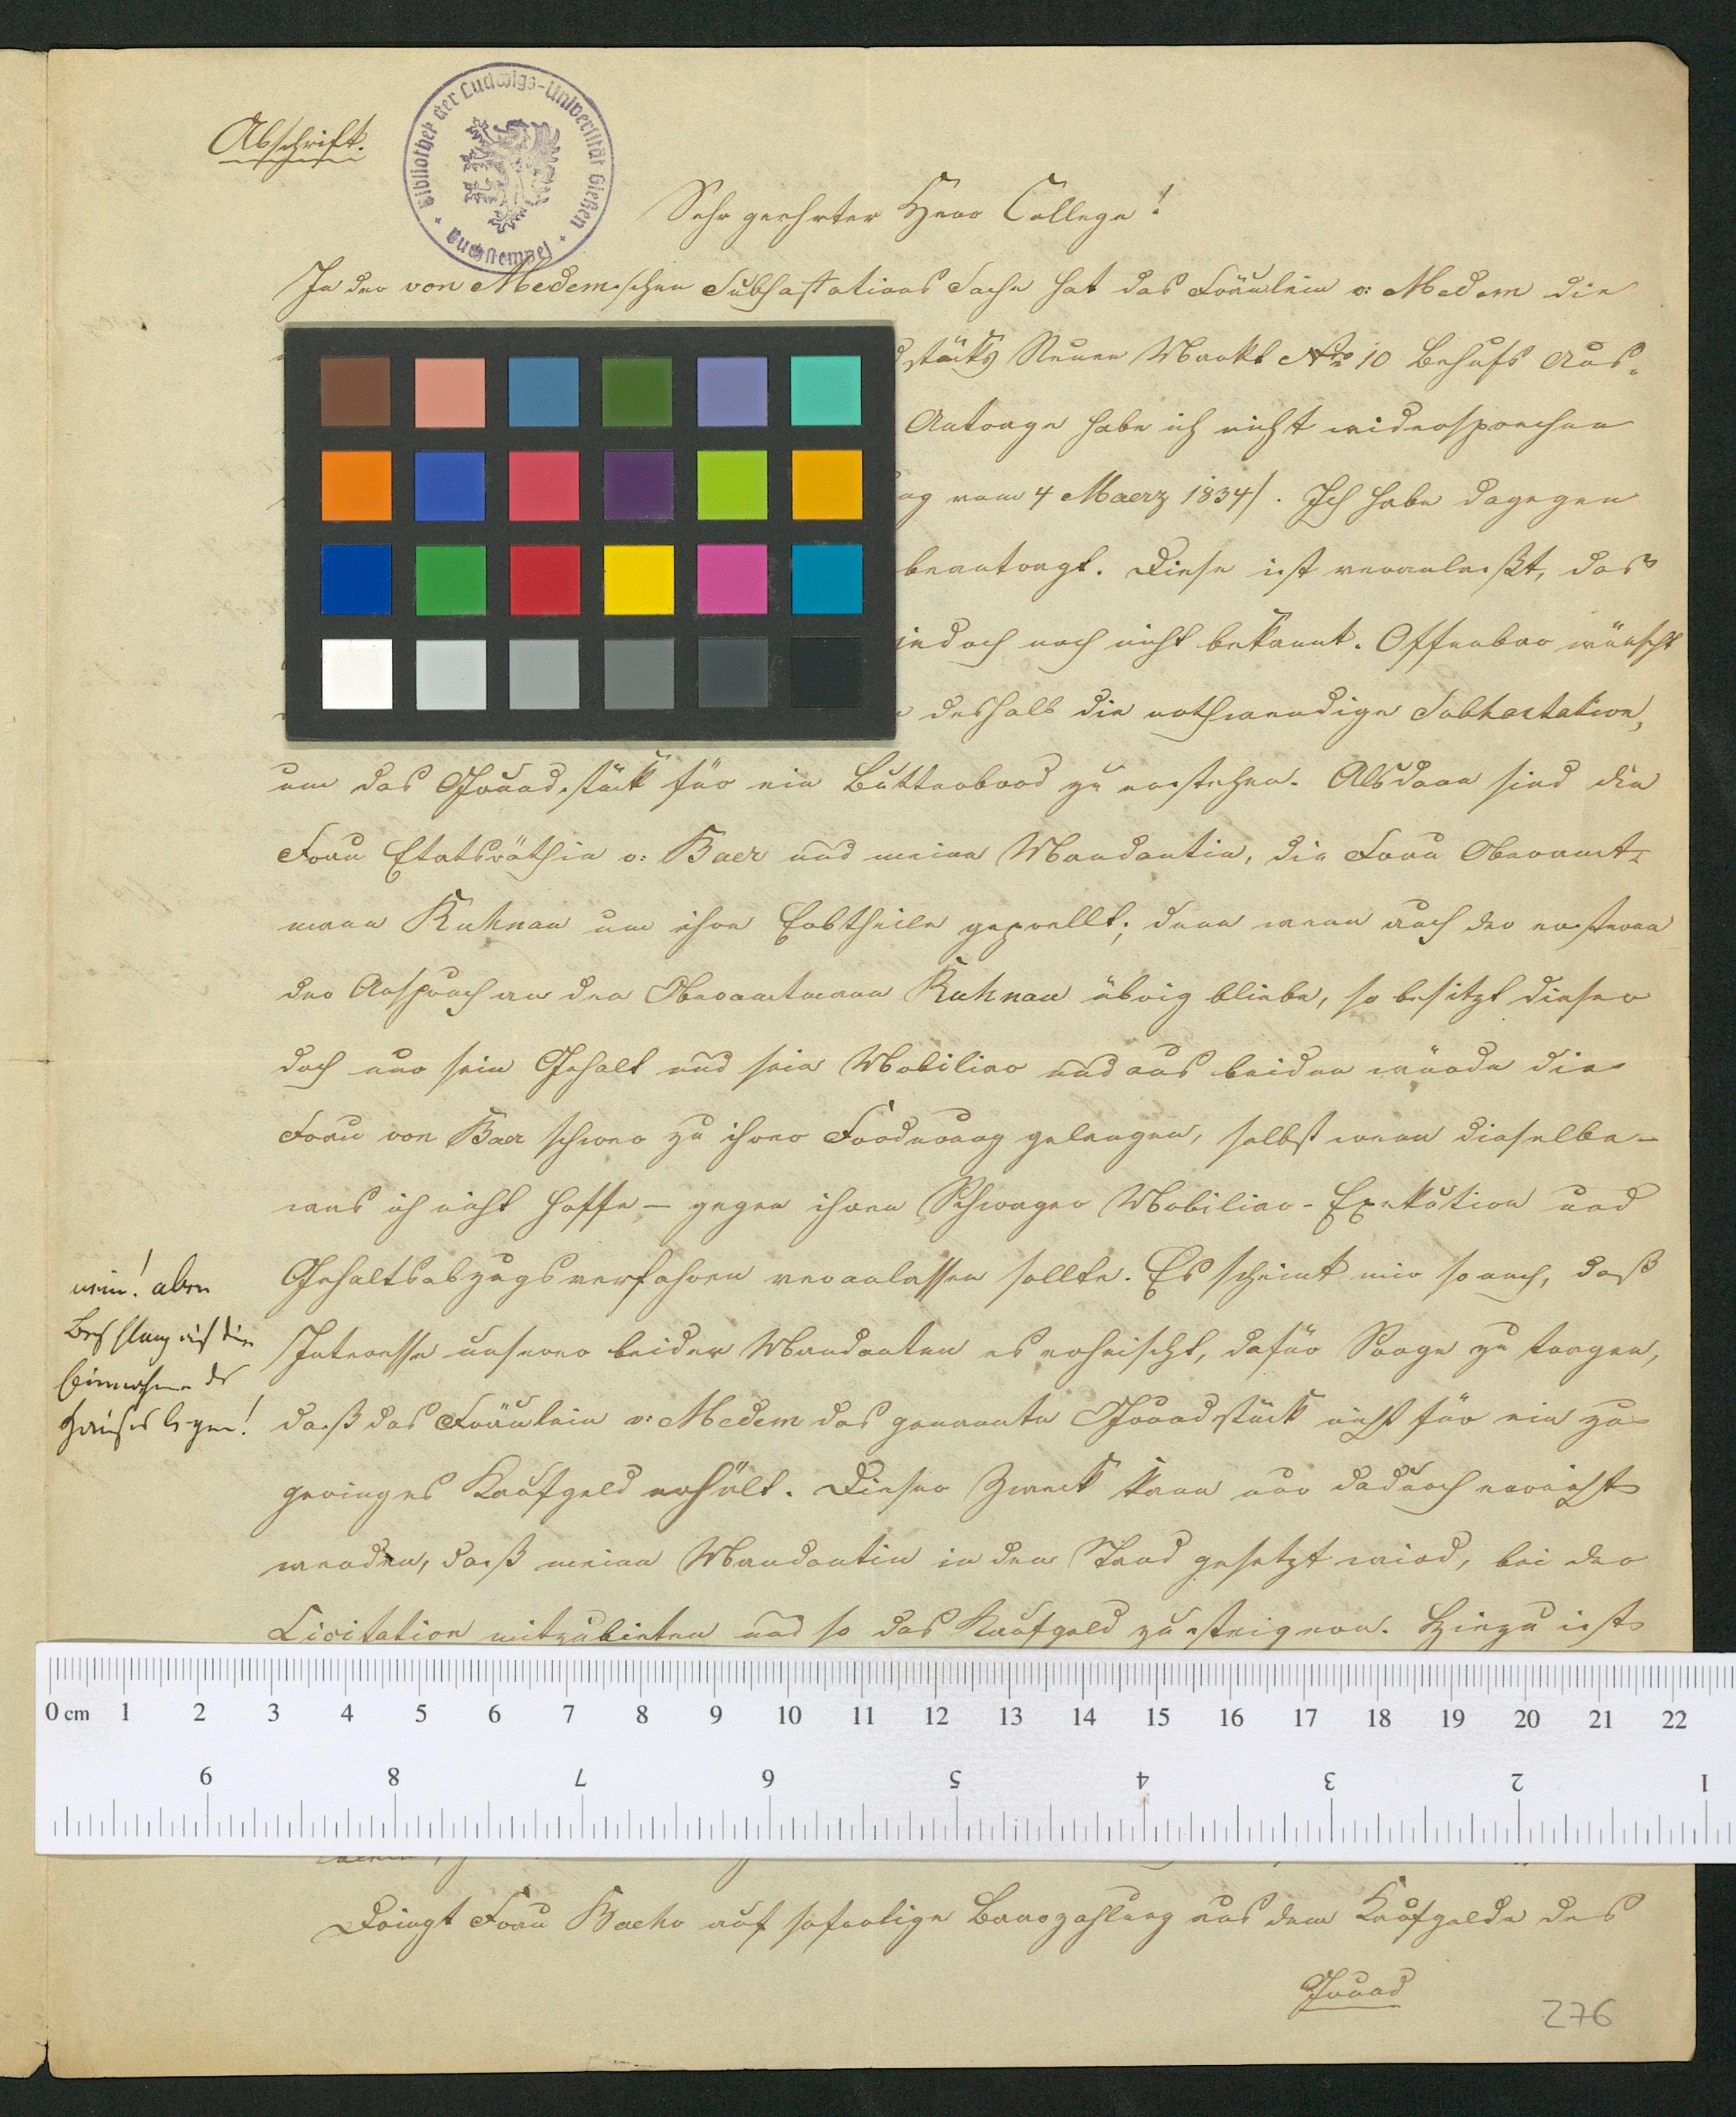 Abschrift.
Bibliothek der Ludwigs-Universität Gießen
Buchstempel
Sehr geehrter Herr College!
In der von Medem'schen Subhastations Sache hat das Fräulein v: Medem die
stücks Neuen Markt No 10 Behufs Aus-
Antrage habe ich nicht widersprochen
vom 4 Maerz 1834/. Ich habe dagegen
beantragt. Diese ist veranlaßt, das
jedoch noch nicht bekannt. Offenbar wünscht
deshalb die nothwendige Subhastation,
um das Grundstück für ein Butterbrod zu erstehen. Alsdann sind die
Frau Etatsräthin v: Baer und meine Mandantin, die Frau Oberamt-
mann Kuhnau um ihre Erbtheile geprellt; denn wenn auch der ersteren
der Anspruch an den Oberamtmann Kuhnau übrig bliebe, so besitzt dieser
doch nur sein Gehalt und sein Mobiliar und aus beiden würde die
Frau von Baer schwer zu ihrer Forderung gelangen, selbst wenn dieselbe –
was ich nicht hoffe – gegen ihren Schwager Mobiliar-Exekution und
Gehaltsabzugsverfahren veranlassen sollte. Es scheint mir so nach, daß
Interesse unserer beider Mandanten es erheischt, dafür Sorge zu tragen,
daß das Fräulein v: Medem das genannte Grundstück nicht für ein zu
geringes Kaufgeld erhält. Dieser Zweck kann nur dadurch erreicht
werden, daß meine Mandantin in den Stand gesetzt wird, bei der
Licitation mitzubieten und so das Kaufgeld zu steigern. Hiezu ist
nein! aber
auf die
Einnahme des
Hauses legen!
0 cm 1 2 3 4 5 6 7 8 9 10 11 12 13 14 15 16 17 18 19 20 21 22
9 8 7 6 5 4 3 2 1
Dringt Frau Baehr auf sofortige Baarzahlung aus dem Kaufgelde des
Grund
276